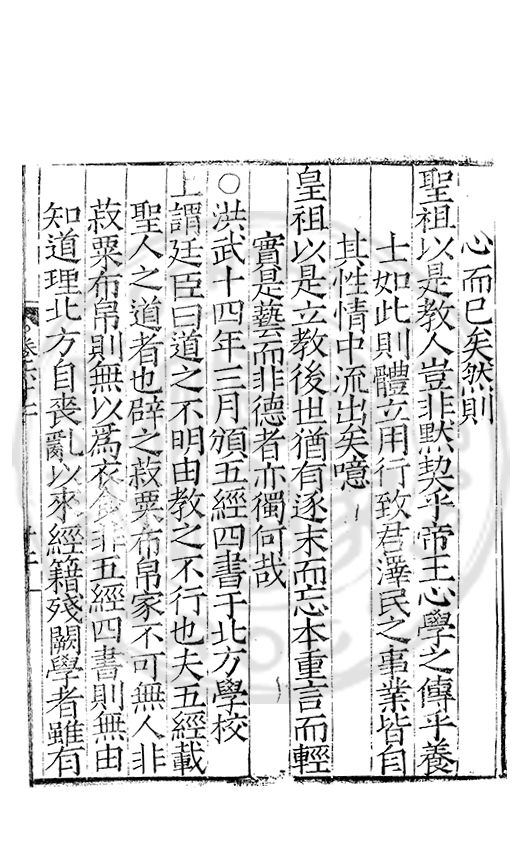 心而已矣然則
聖祖以是教人豈非默契乎帝王心學之傳乎養
士如此則體立用行致君澤民之事業皆自
其性情中流出矣噫
皇祖以是立教後世猶有逐末而忘本重言而輕
實是藝而非德者亦獨何哉
○洪武十四年三月頒五經四書于北方學校
上謂廷臣曰道之不明由教之不行也夫五經載
聖人之道者也辟之菽粟布帛家不可無人非
菽粟布帛則無以為衣食非五經四書則無由
知道理北方自喪亂以來經籍殘闕學者雖有